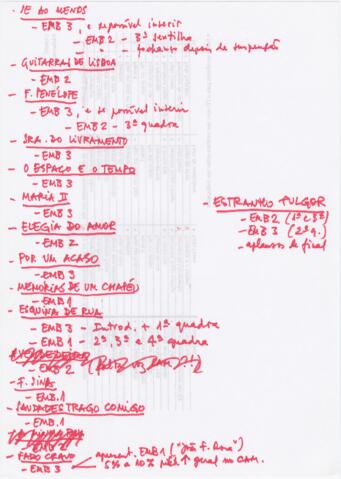 - IE AO MENOS
- EMB 3, e se possível inserir
- EMB 2 - 3ª sextilha
- " - fechando depois da suspensão
- GUITARRAS DE LISBOA
- EMB 2
- F. PENÉLOPE
- EMB 3, e se possível inserir
- EMB 2 - 3ª quadra
- SRA. DO LIVRAMENTO
- EMB 3
- O ESPAÇO E O TEMPO
- EMB 3
- MARIA II
- EMB 3
- ELEGIA DO AMOR
- EMB 2
- POR UM ACASO
- EMB 3
- MEMÓRIAS DE UM CHAPÉU
- EMB 1
- ESQUINA DE RUA
- EMB 3 - Introd. + 1ª quadra
- EMB 1 - 2ª, 3ª e 4ª quadra
- EMB 2
- F. SINA
- EMB. 1
- SAUDADES TRAGO COMIGO
- EMB. 1
- EMB 2
- FADO CRAVO
- EMB 3
apresent. EMB 1 ("João F. Rosa")
5% a 10% mais ↑ geral no CAM.
- ESTRANHO FULGOR
- EMB 2 (1ª e 3ª)
- EMB 3 (2ª q.)
- aplausos no final